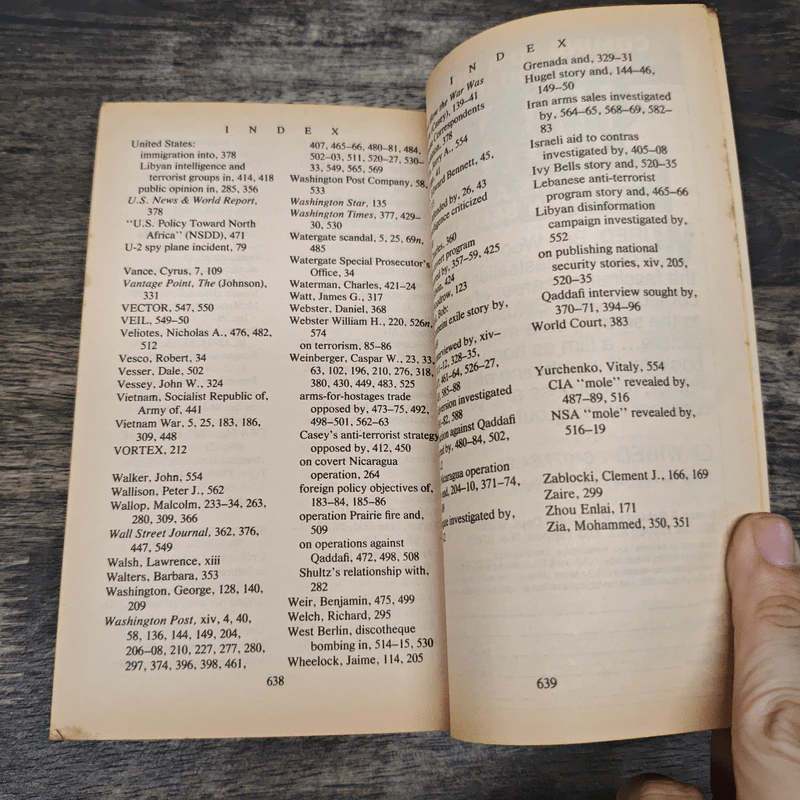 I N D E X
United States:
immigration into, 378
Libyan intelligence and
terrorist groups in, 414, 418
public opinion in, 285, 356
U.S. News & World Report,
378
"U.S. Policy Toward North
Africa" (NSDD), 471
U-2 spy plane incident, 79
Vance, Cyrus, 7, 109
Vantage Point, The (Johnson),
331
VECTOR, 547, 550
VEIL, 549–50
Veliotes, Nicholas A., 476, 482,
512
Vesco, Robert, 34
Vesser, Dale, 502
Vessey, John W., 324
Vietnam, Socialist Republic of,
Army of, 441
Vietnam War, 5, 25, 183, 186,
309, 448
VORTEX, 212
Walker, John, 554
Wallison, Peter J., 562
Wallop, Malcolm, 233–34, 263,
280, 309, 366
Wall Street Journal, 362, 376,
447, 549
Walsh, Lawrence, xiii
Walters, Barbara, 353
Washington, George, 128, 140,
209
Washington Post, xiv, 4, 40,
58, 136, 144, 149, 204,
206–08, 210, 227, 277, 280,
297, 374, 396, 398, 461,
407, 465–66, 480–81, 484,
502–03, 511, 520–27, 530–
33, 549, 565, 569
Washington Post Company, 58,
533
Washington Star, 135
Washington Times, 377, 429–
30, 530
Watergate scandal, 5, 25, 69n,
485
Watergate Special Prosecutor's
Office, 34
Waterman, Charles, 421–24
Watt, James G., 317
Webster, Daniel, 368
Webster William H., 220, 526n,
574
on terrorism, 85–86
Weinberger, Caspar W., 23, 33,
63, 102, 196, 210, 276, 318,
380, 430, 449, 483, 525
arms-for-hostages trade
opposed by, 473–75, 492,
498–501, 562–63
Casey's anti-terrorist strategy
opposed by, 412, 450
on covert Nicaragua
operation, 264
foreign policy objectives of,
183–84, 185–86
operation Prairie fire and,
509
on operations against
Qaddafi, 472, 498, 508
Shultz's relationship with,
282
Weir, Benjamin, 475, 499
Welch, Richard, 295
West Berlin, discotheque
bombing in, 514–15, 530
Wheelock, Jaime, 114, 205
638
I N D E X
the War Was
Casey), 139–41
Correspondents
378
A., 554
41
Bennett, 45,
by, 26, 43
criticized
360
program
by, 357–59, 425
424
123
Bob:
exile story by,
by, xiv–
328–35,
461–64, 526–27,
585–88
investigated
82, 588
against Qaddafi
by, 480–84, 502,
operation
204–10, 371–74,
investigated by,
Grenada and, 329–31
Hugel story and, 144–46,
149–50
Iran arms sales investigated
by, 564–65, 568–69, 582–
83
Israeli aid to contras
investigated by, 405–08
Ivy Bells story and, 520–35
Lebanese anti-terrorist
program story and, 465–66
Libyan disinformation
campaign investigated by,
552
on publishing national
security stories, xiv, 205,
520–35
Qaddafi interview sought by,
370–71, 394–96
World Court, 383
Yurchenko, Vitaly, 554
CIA "mole" revealed by,
487–89, 516
NSA "mole" revealed by,
516–19
Zablocki, Clement J., 166, 169
Zaire, 299
Zhou Enlai, 171
Zia, Mohammed, 350, 351
639